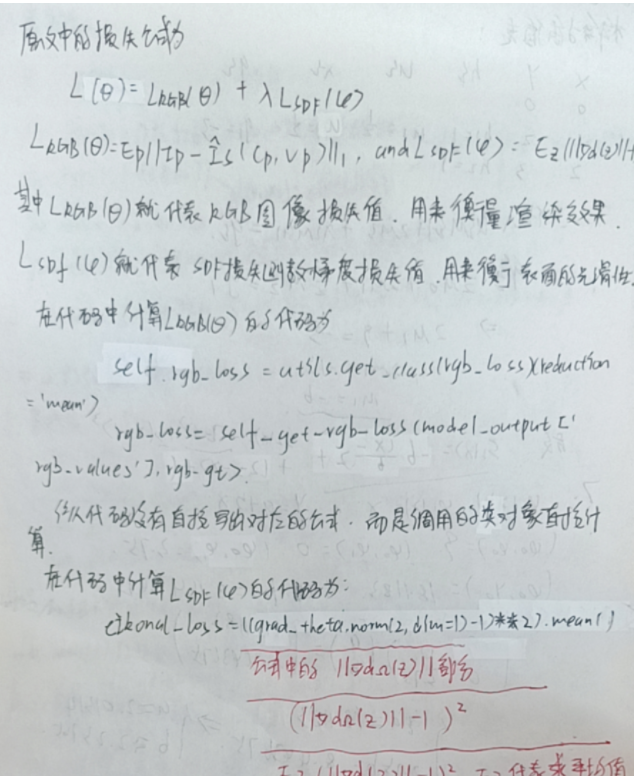 原文中的损失公式为
L(θ)= L_RGB(θ) + λL_SDF(φ)
L_RGB(θ)=Ep||Ip - Îs(Cp,Vp)||₁, and L_SDF(φ)= Ez(||∇d(z)||-
其中L_RGB(θ)就代表RGB图像损失值.用来衡量渲染效果.
L_SDF(φ)就代表SDF损失函数梯度损失值.用来衡量表面的光滑性.
在代码中计算L_RGB(θ)的代码为
self.rgb_loss = utils.get_class(rgb_loss)(reduction
='mean')
rgb_loss= self_get-rgb-loss(model_output['
rgb_values'],rgb-gt)
代码没有直接写出对应的公式.而是调用的类对象直接计
算.
在代码中计算L_SDF(φ)的代码为:
eikonal_loss=((grad_theta.norm(2,dim=1)-1)**2).mean()
公式中的 ||∇dΩ(z)||部分
(||∇dΩ(z)||-1)²
Ez(||∇d(z)||-1)² Ez代表求平均值